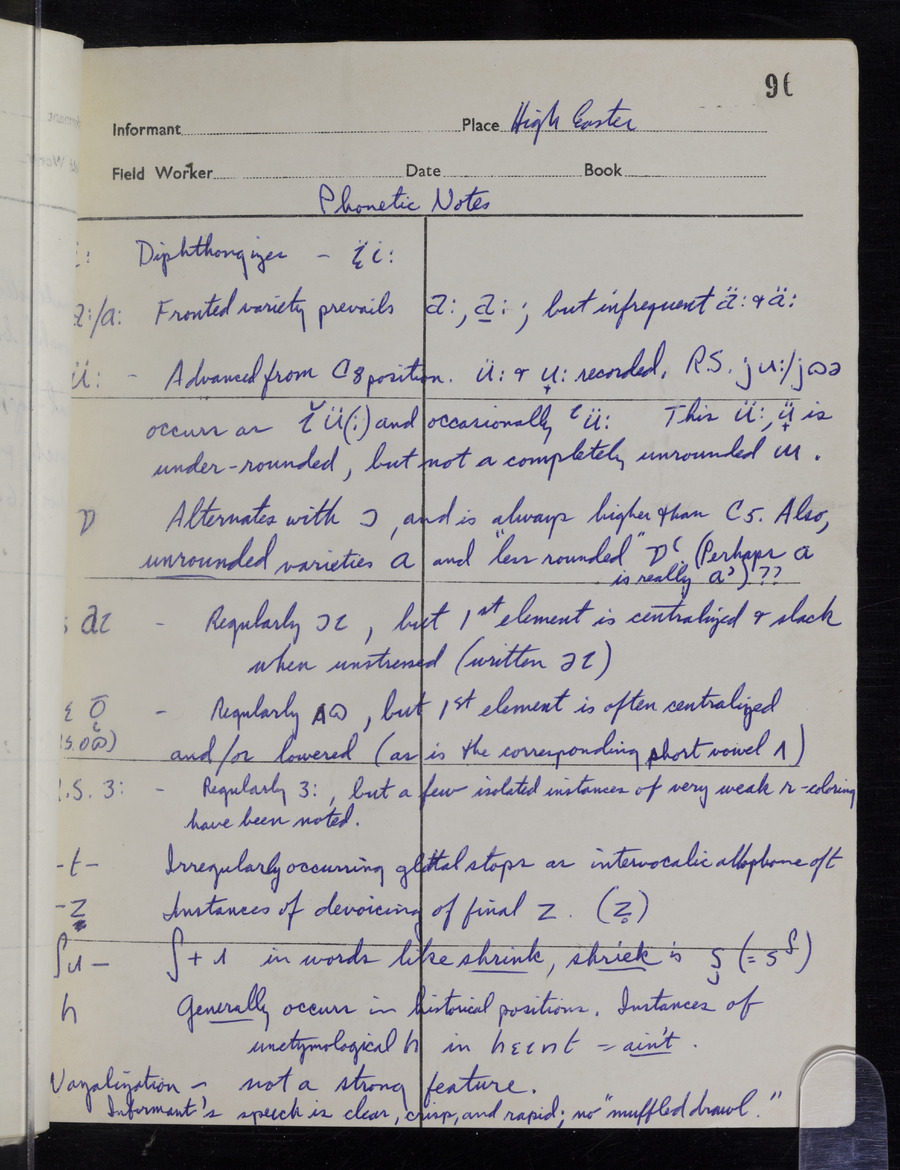 96
Informant Place High Easter
Field Worker Date Book
Phonetic Notes
i: Diphthongizes – ɪ̈i:
a:/ɑ: Fronted variety prevails a:, a̠: ; but infrequent ä: & ɑ̈:
ü: - Advanced from C8 position. ü: & u̟: recorded. R.S. ju:/jɷə
occurs as ɪ̆ü(:) and occasionally ᶤü: This ü:, ü̟ is
under-rounded, but not a completely unrounded ɯ.
ɒ Alternates with ɔ, and is always higher than C5. Also,
unrounded varieties ɑ and "less rounded" ɒ˓ (Perhaps ɑ
is really ɑ˒)??
aɪ - Regularly ɔɪ, but 1st element is centralized & slack
when unstressed (written əɪ)
ō - Regularly ʌɷ, but 1st element is often centralized
and/or lowered (as is the corresponding short vowel ʌ)
R.S. ɜ: - Regularly ɜ:, but a few isolated instances of very weak r-coloring
have been noted.
-t- Irregularly occurring glottal stops as intervocalic allophone of t
-z Instances of devoicing of final z. (z̥)
ʃɹ - ʃ + ɹ in words like shrink, shriek is s̡ (= sᶴ)
h Generally occurs in historical positions. Instances of
unetymological h in hɛɪnt = ain't.
Nasalization - not a strong feature.
Informant's speech is clear, crisp, and rapid; no "muffled drawl."